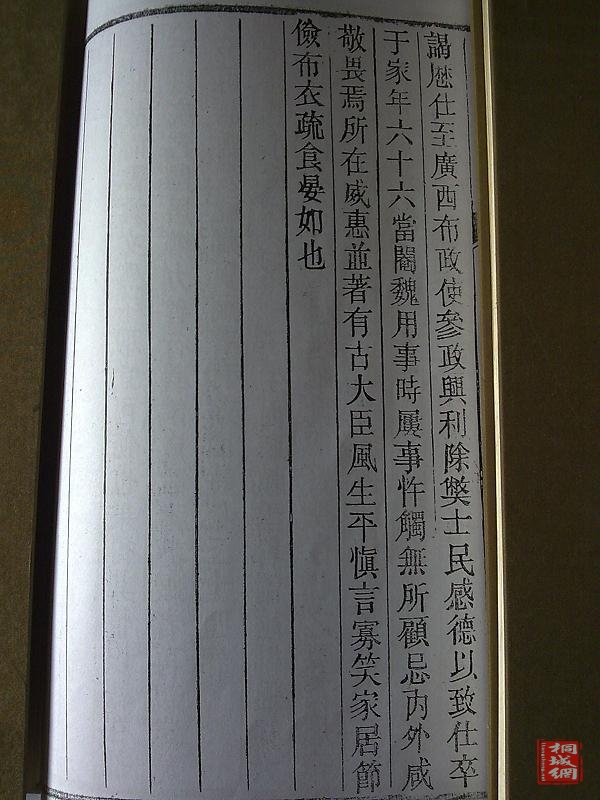 謁歴仕至廣西布政使參政興利除弊士民感德以致仕卒
于家年六十六當閹魏用事時屢事忤觸無所顧忌内外咸
敬畏焉所在威惠並著有古大臣風生平慎言寡笑家居節
儉布衣疏食晏如也
桐城網